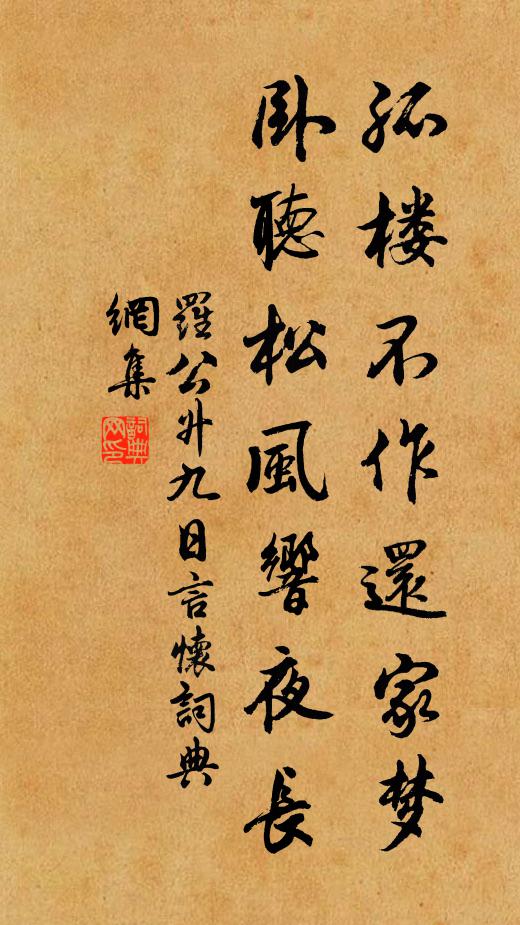 孤楼不作還家梦
卧聽松風響夜長
羅公升九日言懷詞典
網集
詞典
网印